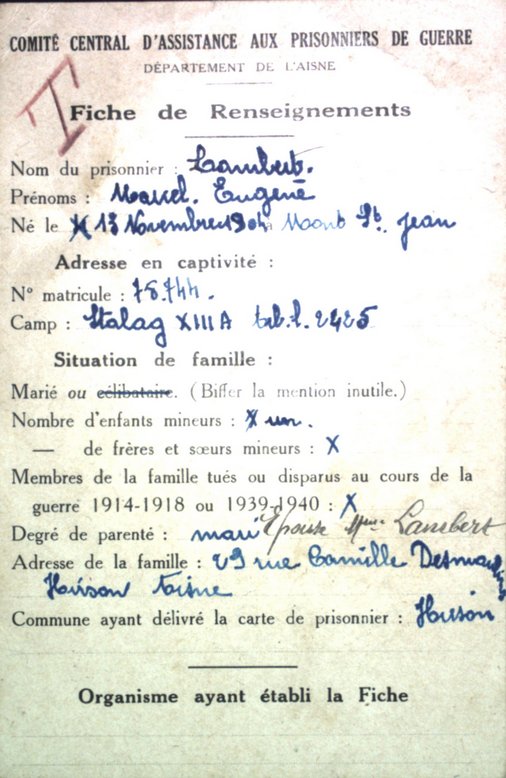 COMITÉ CENTRAL D'ASSISTANCE AUX PRISONNIERS DE GUERRE
DÉPARTEMENT DE L'AISNE
T
Fiche de Renseignements
Nom du prisonnier : Lambert.
Prénoms : Marcel. Eugene
Né le 13 Novembre 1904 à Mont St. Jean
Adresse en captivité :
N° matricule : 78.744.
Camp : Stalag XIII A 2425
Situation de famille :
Marié ou célibataire. (Biffer la mention inutile.)
Nombre d'enfants mineurs : X un.
— de frères et sœurs mineurs : X
Membres de la famille tués ou disparus au cours de la
guerre 1914-1918 ou 1939-1940 : X
Degré de parenté : mari Epouse Mme Lambert
Adresse de la famille : 29 rue Camille Desmoulins
Hirson Aisne
Commune ayant délivré la carte de prisonnier : Hirson
Organisme ayant établi la Fiche